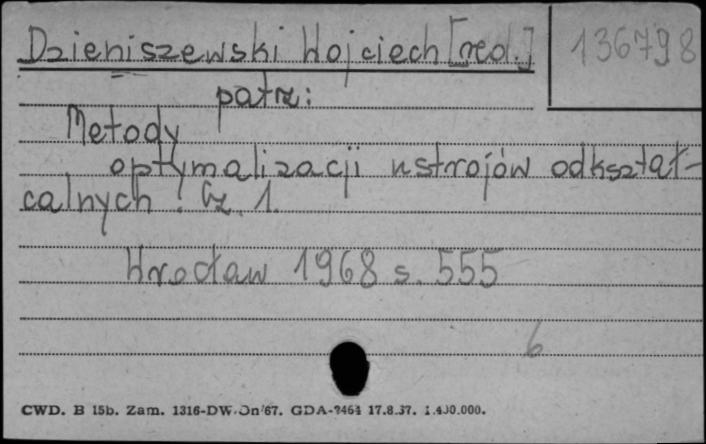 Dzieniszewski Wojciech [red.]
136798
patrz:
Metody
optymalizacji ustrojów odkształ-
calnych. Cz. 1.
Wrocław 1968 s. 555
6
CWD. B 15b. Zam. 1316-DW. Dn/67. GDA-2464 17.8.67. 1.400.000.